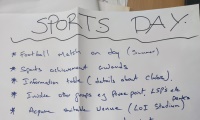 SPORTS DAY.
* Football Match on day (Summer)
* Sports achievement awards
* Information table (details about clubs).
* Involve other groups eg Phoenix park, LSPs etc
* Acquire suitable Venue (LOI Stadium)